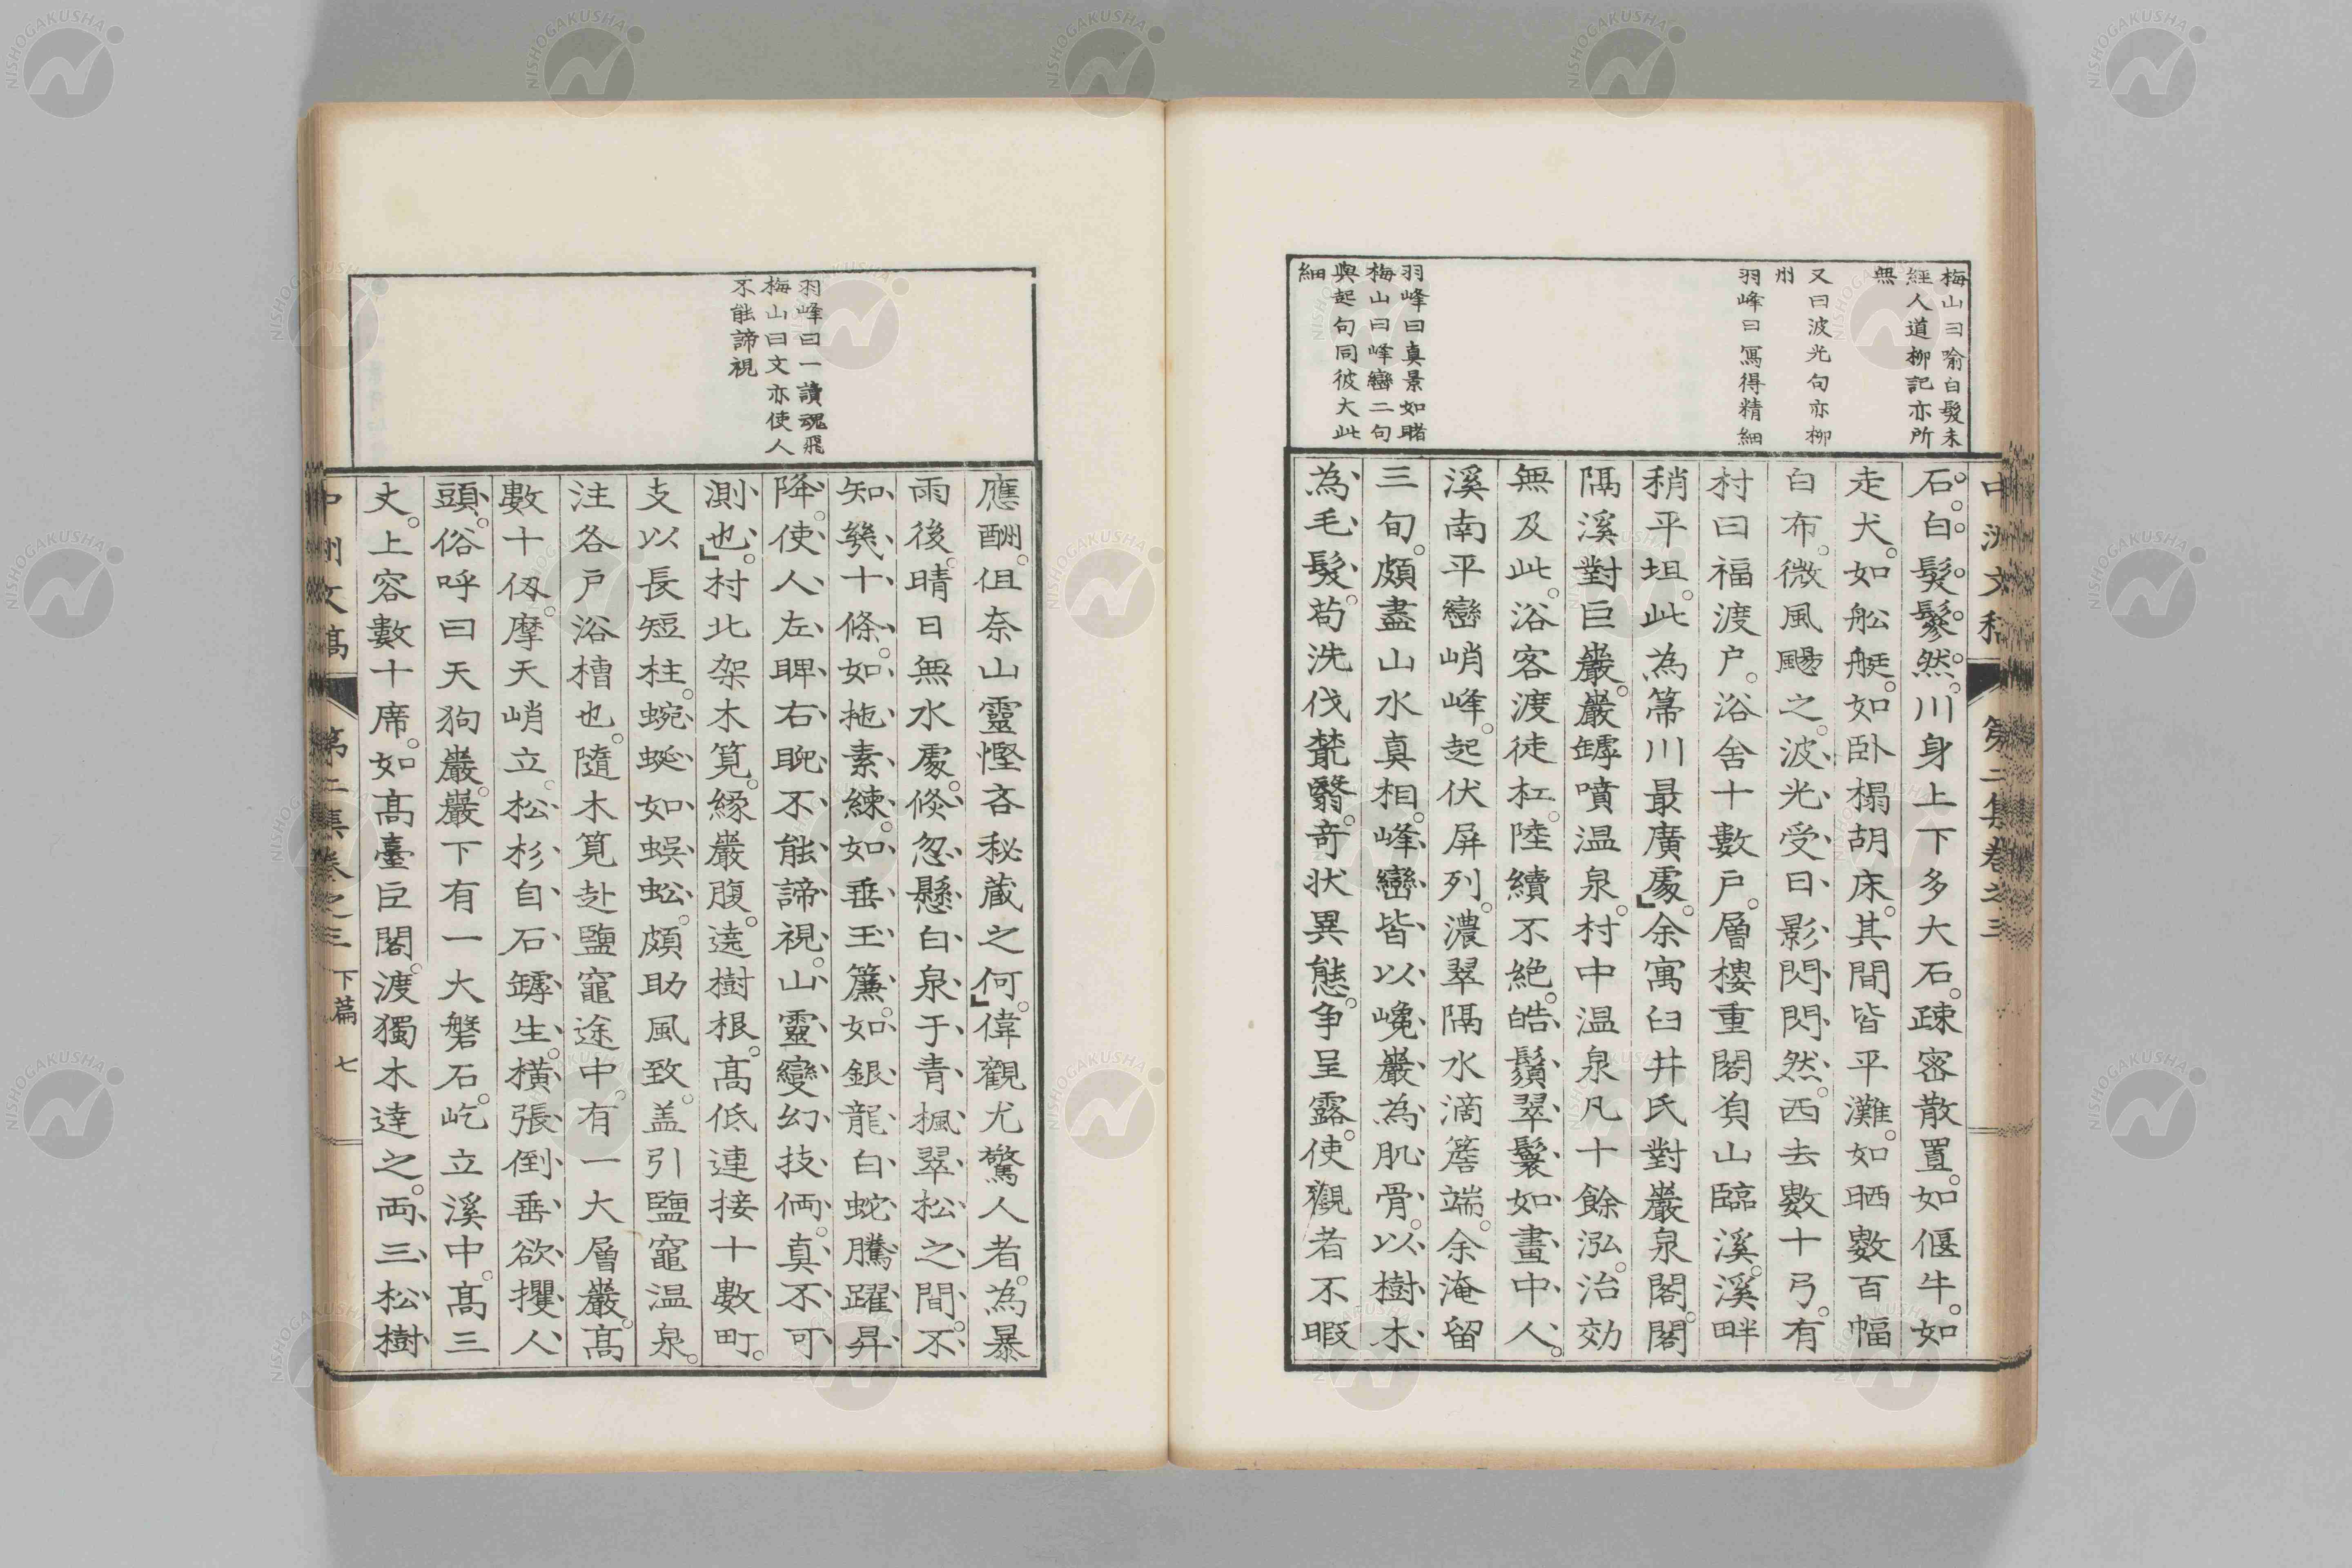 梅山曰喻白髮未
經人道柳記亦所
無
又曰波光句亦柳
州
羽峰曰寫得精細
羽峰曰真景如睹
梅山曰峰巒二句
與起句同彼大此
細
石。白。髮。鬖。然。川身上下多大石。疎密散置。如偃牛。如
走犬。如舩艇。如卧榻胡床。其間皆平灘。如晒數百幅
白布。微風颺之。波光受日影閃閃然。西去數十弓。有
村曰福渡户。浴舍十數户。層樓重閣負山臨溪。溪畔
稍平坦。此為箒川最廣處。余寓臼井氏對巖泉閣。閣
隅溪對巨巖。巖罅噴温泉。村中温泉凡十餘泓。治効
無及此。浴客渡徒杠。陸續不絶。皓鬚翠鬟如畫中人。
溪南平巒峭峰。起伏屏列。濃翠隔水滴簷端。余淹留
三旬。頗盡山水真相。峰巒皆以巉巖為肌骨。以樹木
為毛髮。苟洗伐蓊翳。奇状異態。争呈露。使觀者不暇
中洲文稿 第二集卷之三
羽峰曰一讀魂飛
梅山曰文亦使人
不能諦視
應酬。但奈山靈慳吝秘蔵之何。偉觀尤驚人者。為暴
雨後。晴日無水處。倏忽懸白泉于青楓翠松之間。不
知幾十條。如拖素練。如垂玉簾。如銀龍白蛇騰躍昇
降。使人左睥右睨不能諦視。山靈變幻技倆。真不可
測也。村北架木筧。縁巖腹。遶樹根。高低連接十數町。
支以長短柱。蜿蜒如蜈蚣。頗助風致。盖引鹽竈温泉。
注各戸浴槽也。隨木筧赴鹽竈途中。有一大層巖。高
數十仭。摩天峭立。松杉自石罅生。横張倒垂欲攫人
頭。俗呼曰天狗巖。巖下有一大磐石。屹立溪中。高三
丈。上容數十席。如高臺巨閣。渡獨木達之。両三松樹
中洲文稿 第二集卷之三 下篇 七